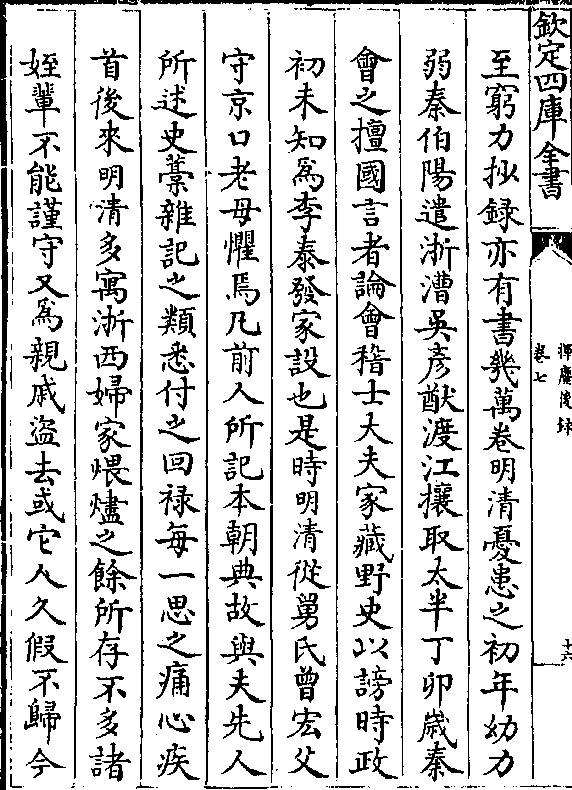 欽定四庫全書
揮麈後録
卷七
十六
至窮力抄録亦有書幾萬卷明清憂患之初年幼力
弱秦伯陽遣浙漕吳彦猷渡江攘取太半丁卯歲秦
會之擅國言者論會稽士大夫家藏野史以謗時政
初未知爲李泰發家設也是時明清從舅氏曾宏父
守京口老母懼焉凡前人所記本朝典故與夫先人
所述史藁雜記之類悉付之回禄每一思之痛心疾
首後來明清多寓浙西婦家煨燼之餘所存不多諸
姪輩不能謹守又爲親戚盜去或它人久假不歸今